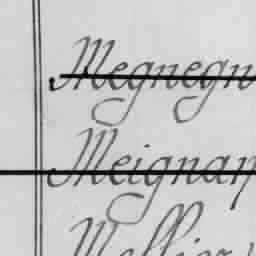 Megnegn
Meignan
Mellier